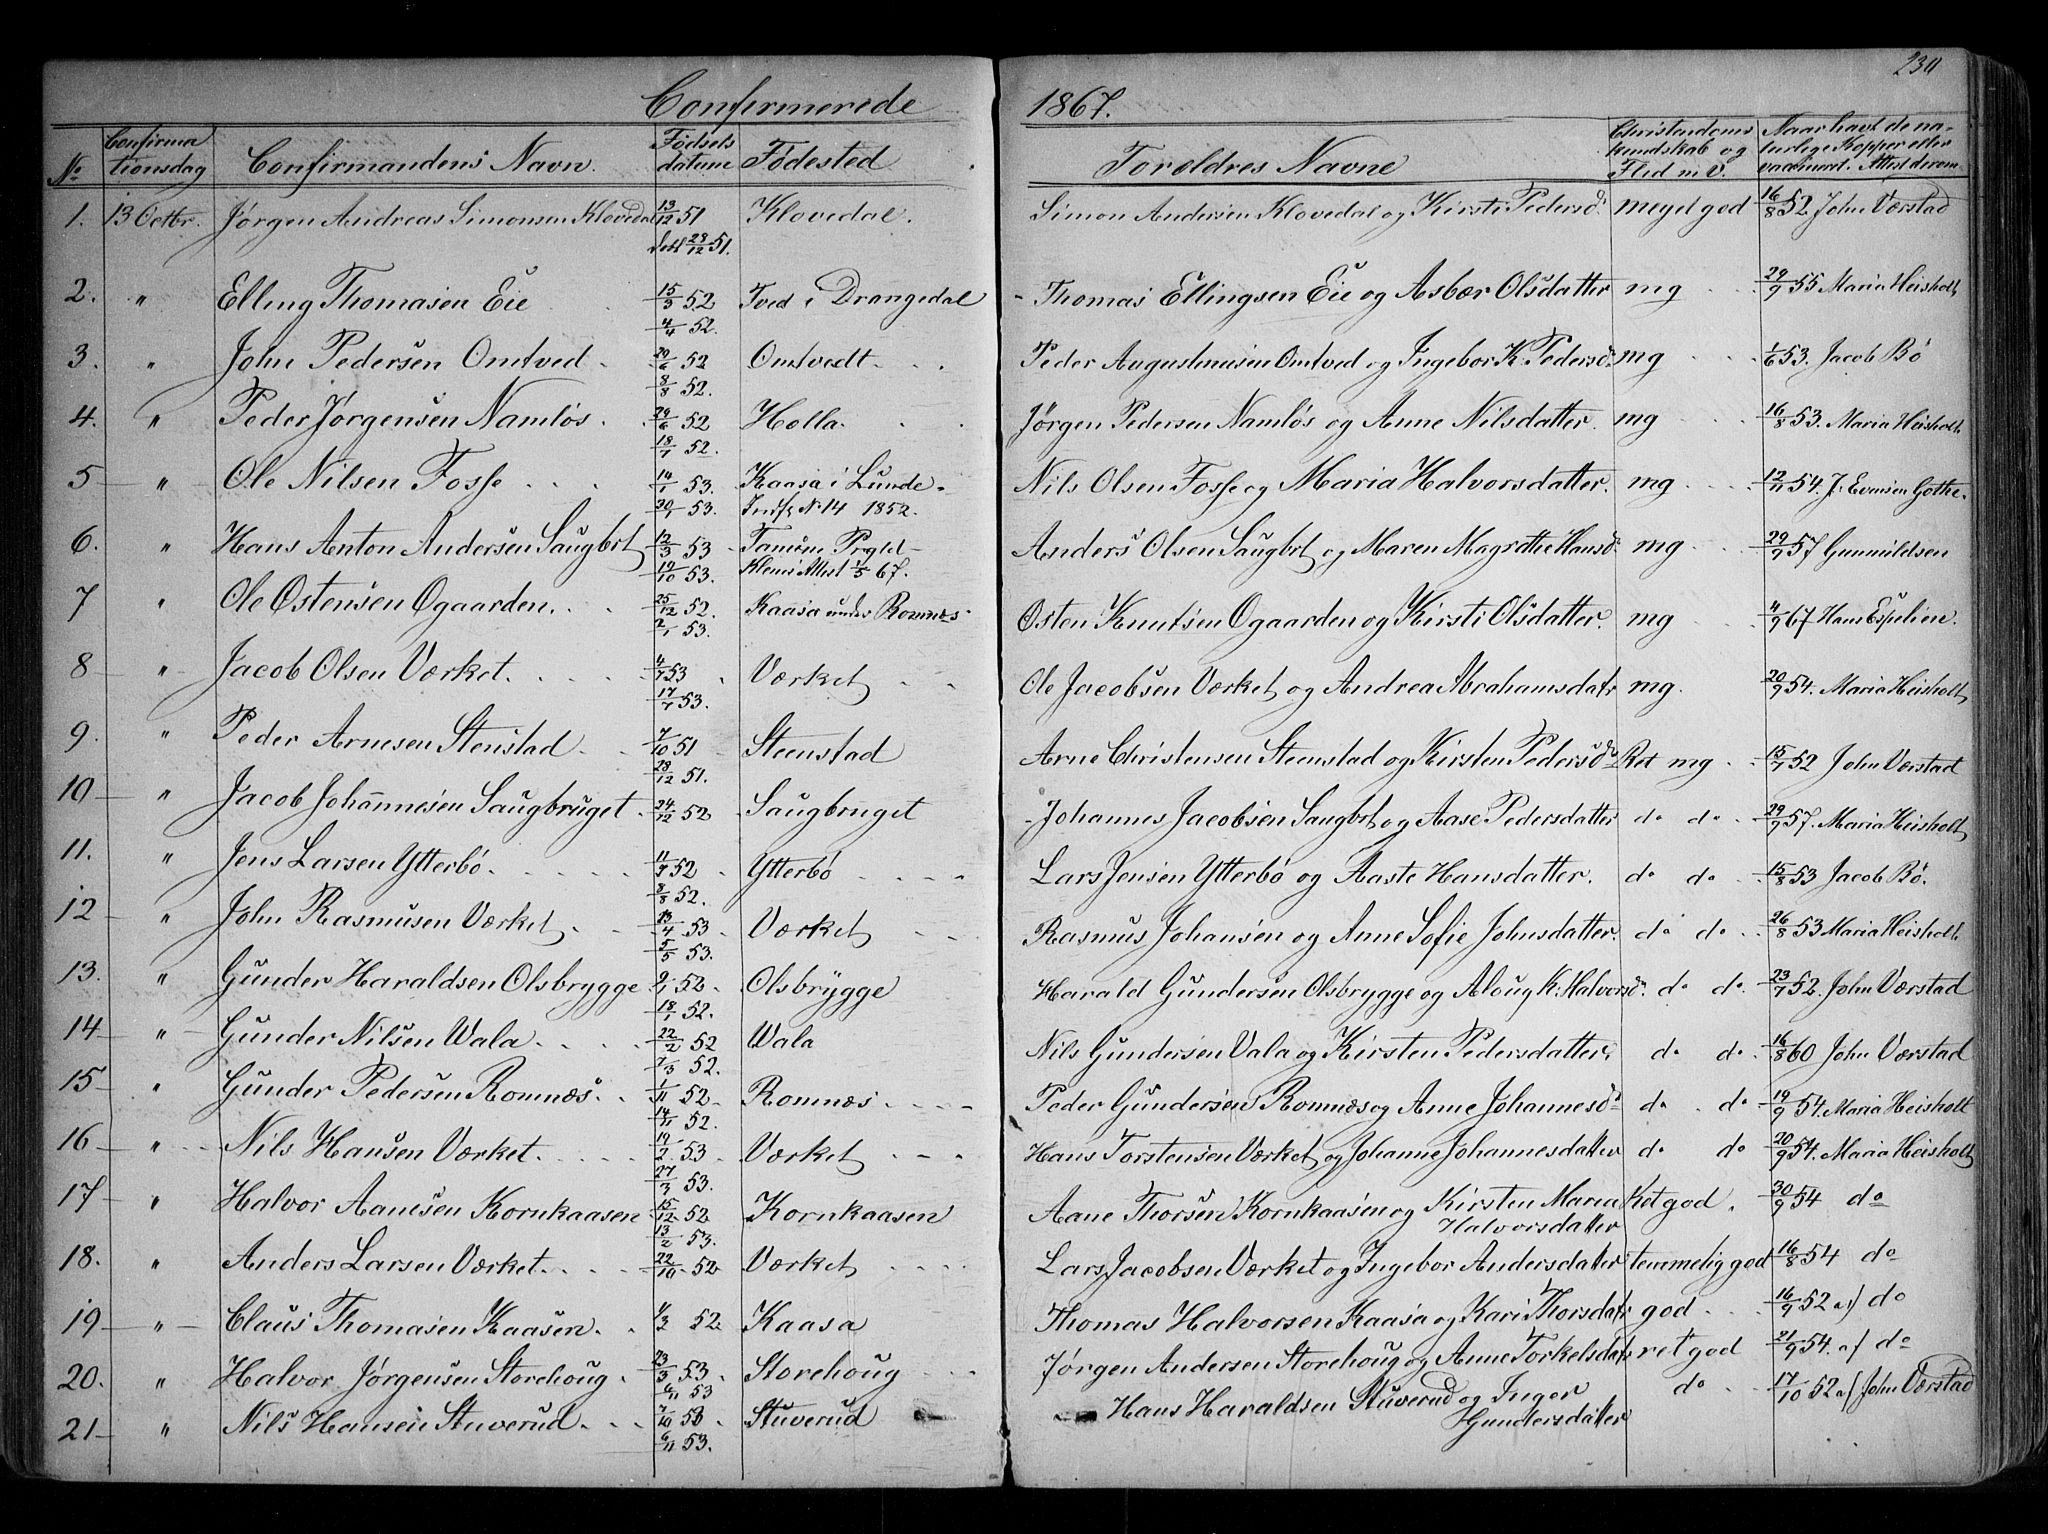 230
Confirmerede 1867.
No Confirmationsdag Confirmandens Navn. Fødsels datum Fødested Foreldres Navne Christendoms kundskab og Flid m. v. Naar havt de naturlige Kopper eller vaccineret. Attest derom
1. 13 Octbr. Jørgen Andreas Simonsen Klovedal 13/12 51 Klovedal. Simon Andersen Klovedal og Kirsti Pedersd. meget god 16/8 52 John Værstad
døbt 28/12 51.
2. " Elling Thomasen Eie 15/3 52 Tved i Drangedal Thomas Ellingsen Eie og Asbær Olsdatter mg 29/9 55 Maria Heisholt
4/4 52.
3. " John Pedersen Omtved 29/6 52 Omtvedt Peder Augustinusen Omtved og Ingebor K. Pedersd. mg 1/6 53. Jacob Bø
8/8 52.
4. " Peder Jørgensen Namløs 29/6 52 Holla. Jörgen Pedersen Namløs og Anne Nilsdatter. mg 16/8 53. Maria Heisholt.
18/7 52.
5 " Ole Nilsen Fosse 14/1 53. Kaasa i Lunde Nils Olsen Fosse og Maria Halvorsdatter. mg 12/11 54. J. Evensen Gothe.
30/1 53. Indf. N. 14 1852.
6. " Hans Anton Andersen Saugbrt 12/3 53 Tanum Prgld Anders Olsen Saugbrt og Maren Magrethe Hansd. mg 29/9 57 Gunnuldsen
19/10 53. Attest 1/5 67.
7 " Ole Østensen Øgaarden. 25/12 52. Kaasa under Romnæs Østen Knutsen Øgaarden og Kirsti Olsdatter. mg 4/9 67 Hans Espelien.
2/1 53.
8 " Jacob Olsen Værket. 4/7 53 Værket Ole Jacobsen Værket og Andrea Abrahamsdatr mg. 20/9 54. Maria Heisholt
17/7 53.
9. " Peder Arnesen Stenstad 7/10 51 Steenstad Arne Christensen Steenstad og Kirsten Pedersdr Ret mg 15/7 52 John Værstad
28/12 51.
10 " Jacob Johannesen Saugbruget 24/12 52 Saugbruget Johannes Jacobsen Saugbrt og Aase Pedersdatter do do 29/9 57. Maria Heisholt
11. " Jens Larsen Ytterbø. 11/7 52 Ytterbø Lars Jensen Ytterbø og Aaste Hansdatter. do do 15/8 53 Jacob Bø.
8/8 52.
12 " John Rasmusen Værket. 13/4 53 Værket Rasmus Johansen og Anne Sofie Johnsdatter. do do 26/8 53 Maria Heisholt.
5/5 53.
13. " Gunder Haraldsen Olsbrygge 9/1 52 Olsbrygge Harald Gundersen Olsbrygge og Aloug K. Halvorsd. do do. 23/7 52. John Værstad
18/1 52.
14 " Gunder Nilsen Wala. 22/2 52 Wala Nils Gundersen Vala og Kirsten Pedersdatter. do do 16/8 60 John Værstad
7/3 52.
15 " Gunder Pedersen Romnæs. 1/11 52 Romnæs Peder Gundersen Romnæs og Anne Johannesdr do do 19/9 54. Maria Heisholt
14/11 52.
16 " Nils Hansen Værket. 19/2 53 Værket Hans Torstensen Værket og Johanne Johannesdatter do do 20/9 54. Maria Heisholt
27/3 53.
17 " Halvor Aanesen Kornkaasen 15/12 52 Kornkaasen Aane Thorsen Kornkaasen og Kirsten Maria Ret god. 30/9 54 do
13/2 53. Halvorsdatter
18. " Anders Larsen Værket. 22/10 52 Værket Lars Jacobsen Værket og Ingebor Andersdatter temmelig god 16/8 54 do
19 " Claus Thomasen Kaasen. 1/2 52 Kaasa Thomas Halvorsen Kaasa og Kari Thorsdatr god 16/9 52 af do
20. " Halvor Jørgensen Storehoug 23/3 53 Storehoug Jørgen Andersen Storehoug og Anne Torkelsdatr ret god 21/9 54. af do
6/11 53
21 " Nils Hansen Stuverud 7/10 53 Stuverud Hans Haraldsen Stuverud og Inger do 17/10 52 af John Værstad
6/11 53. Gundersdatter